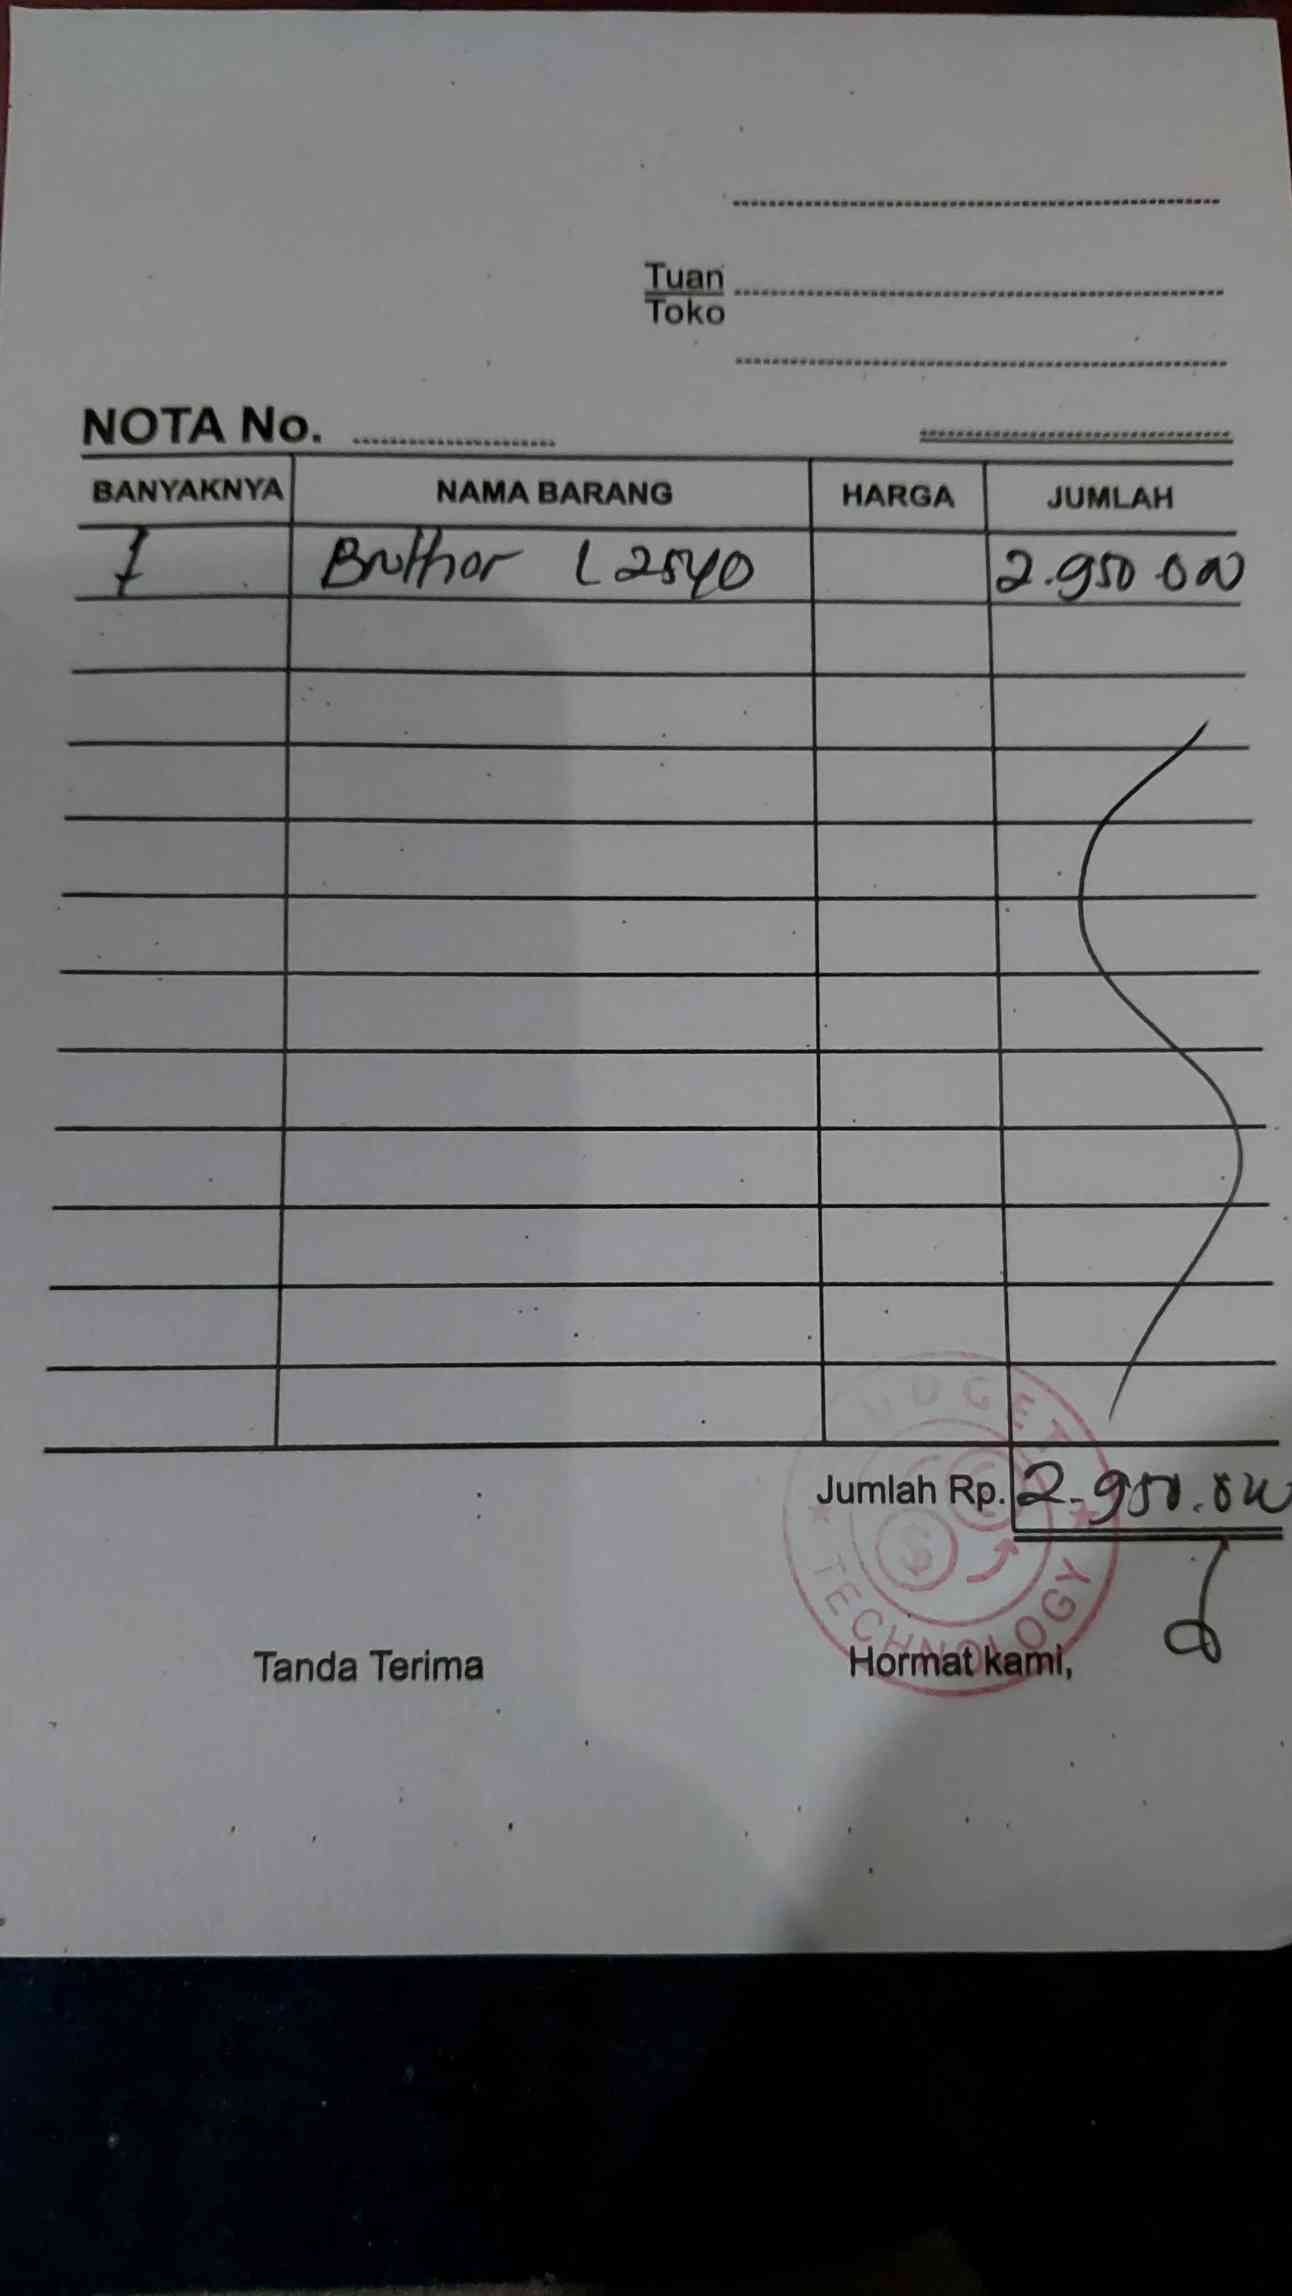 Tuan
Toko
NOTA No.
BANYAKNYA NAMA BARANG HARGA JUMLAH
1 Brother L2540 2.950.000
Jumlah Rp. 2.950.000
UDGET TECHNOLOGY
Tanda Terima Hormat kami,